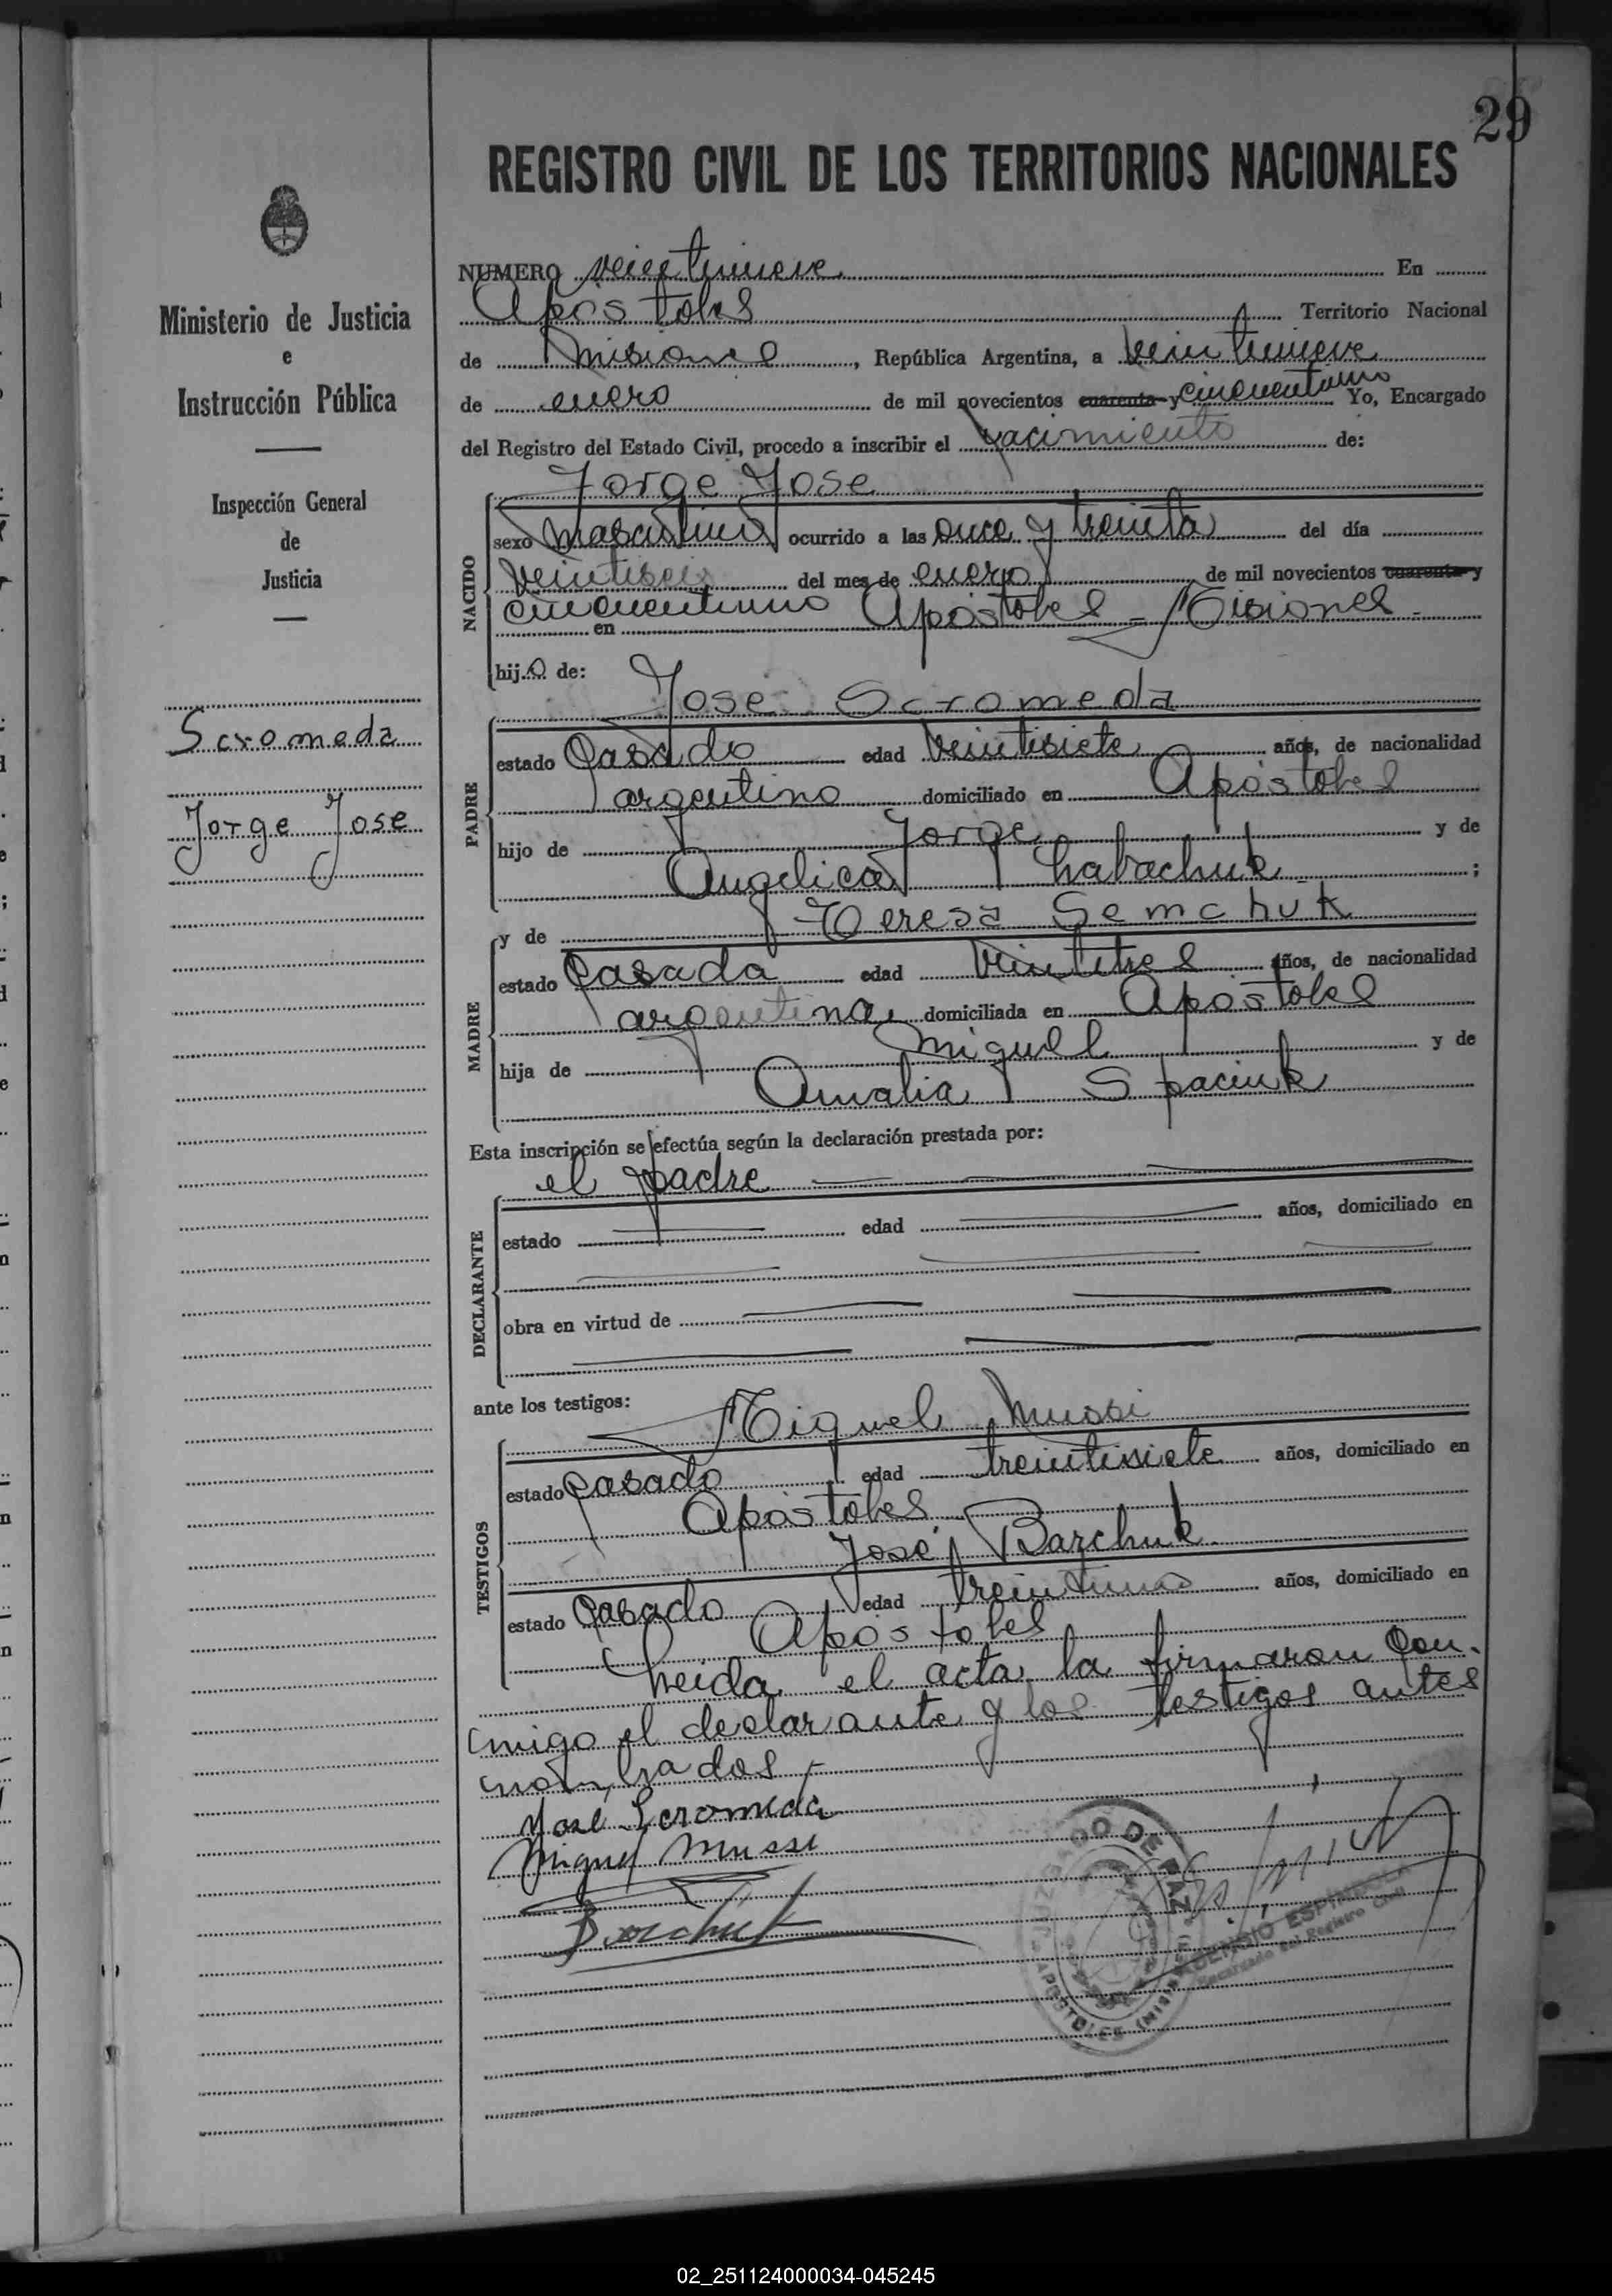 29
REGISTRO CIVIL DE LOS TERRITORIOS NACIONALES
Ministerio de Justicia
e
Instrucción Pública
Inspección General
de
Justicia
Scromeda
Jorge Jose
NUMERO veintinueve En
Apóstoles Territorio Nacional
de Misiones, República Argentina, a veintinueve
de enero de mil novecientos cuarenta y cincuentiuno Yo, Encargado
del Registro del Estado Civil, procedo a inscribir el nacimiento de:
Jorge Jose
NACIDO
sexo masculino ocurrido a las once y treinta del día
veintiseis del mes de enero de mil novecientos cuarenta y
cincuentiuno en Apóstoles - Misiones -
hijo de:
José Scromeda
PADRE
estado casado edad veintisiete años, de nacionalidad
argentino domiciliado en Apóstoles
hijo de Jorge y de
Angelica Labachuk ;
y de Teresa Semchuk
MADRE
estado casada edad veintitres años, de nacionalidad
argentina domiciliada en Apóstoles
hija de Miguel y de
Amalia Spaciuk
Esta inscripción se efectúa según la declaración prestada por:
el padre
DECLARANTE
estado edad años, domiciliado en
obra en virtud de
ante los testigos:
Miguel Mussi
TESTIGOS
estado casado edad treintisiete años, domiciliado en
Apóstoles
José Barchuk
estado casado edad treintiuno años, domiciliado en
Apóstoles
Leida el acta la firmaron con-
migo el declarante y los testigos antes
nombrados
José Scromeda
Miguel Mussi
Barchuk
JUZGADO DE PAZ
APOSTOLES (MISIONES)
ESPINDOLA
Encargado del Registro Civil
02_251124000034-045245